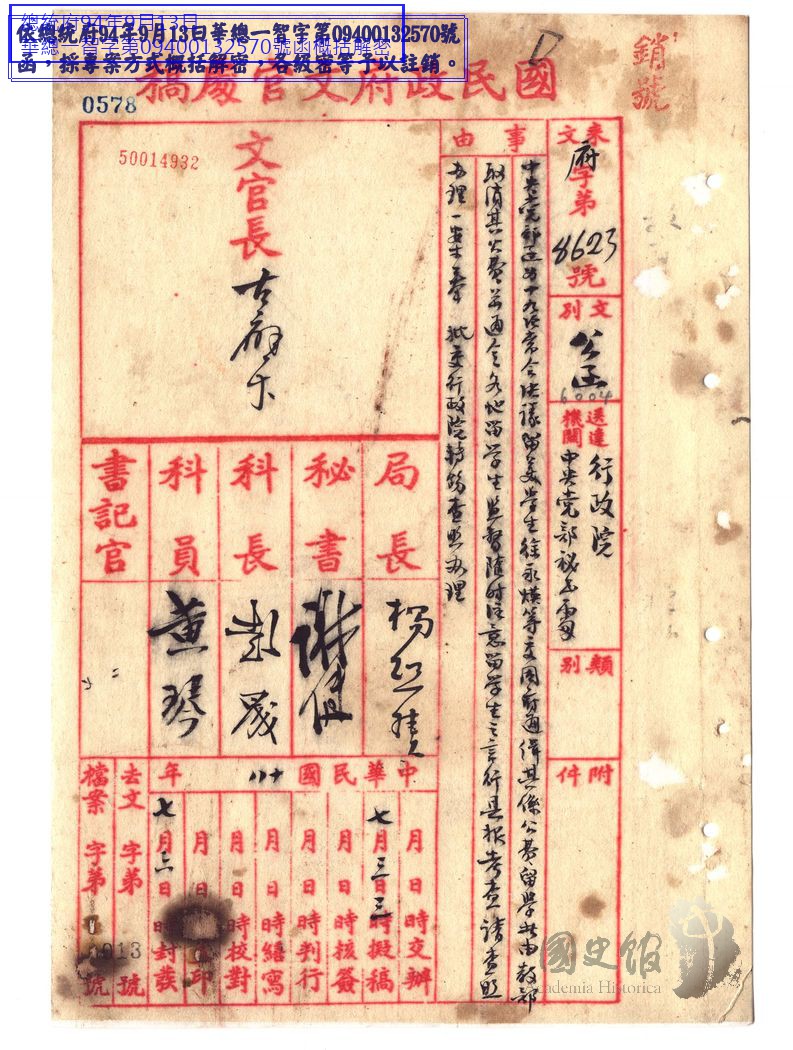 總統府94年9月13日
華總一智字第09400132570號函概括解密
依總統府94年9月13日華總一智字第09400132570號
函，採專案方式概括解密，各級密等予以註銷。
0578
國民政府文官處稿
銷號
50014932
來文 府字第 8623 號
文別 公函
6004
送達機關 行政院
中央党部秘書處
類別
附件
事由
中央党部函為十九次常会決議留美學生徐永煐等交国府通緝其係公費留學者由教部
取消其公費並通令各地留学生監督随時注意留学生之言行具報考查請查照
办理一案奉 批交行政院轉飭查照办理
文官長 古應芬
局長
秘書
科長
科員 黃琴
書記官
中華民國 十八 年
月 日 時交辦
七月三日 三時擬稿
月 日 時核簽
月 日 時判行
月 日 時繕寫
月 日 時校對
月 日 印
七月六日 時封發
去文 字第 號
檔案 字第 號
013
國史館
Academia Historica